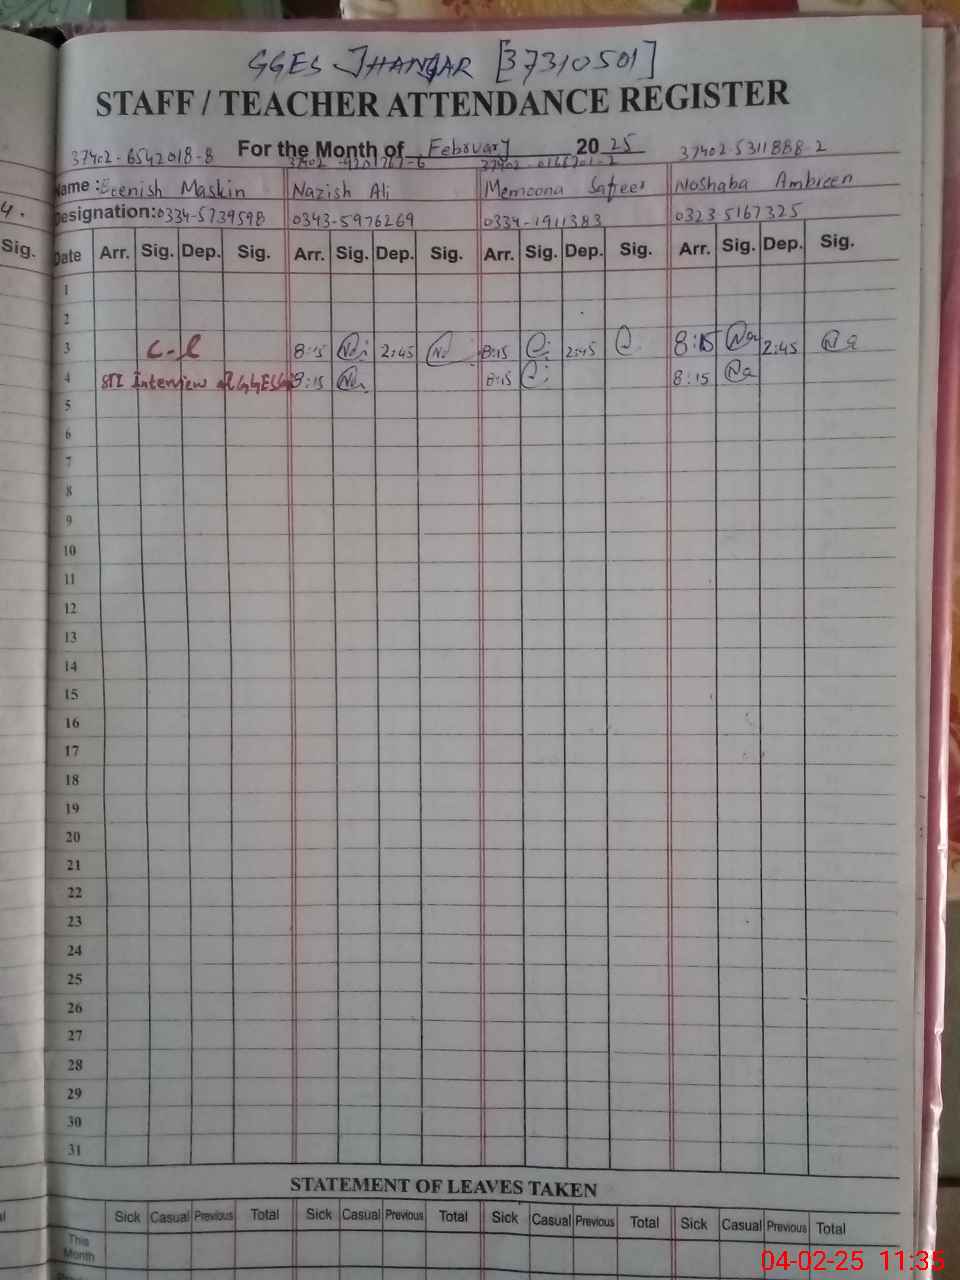 GGES JHANGAR [37310501]
STAFF / TEACHER ATTENDANCE REGISTER
37402-6542018-8 For the Month of February 2025 37402-5311888-2
Name : Maskin Nazish Ali Memoona Noshaba Ambreen
Designation: 0334-5739598 0343-5976269 0334-1911383 0323 5167325
Sig. Date Arr. Sig. Dep. Sig. Arr. Sig. Dep. Sig. Arr. Sig. Dep. Sig. Arr. Sig. Dep. Sig.
1
2
3 C-L 8:15 2:45 8:15 2:45 8:15 2:45
4 STI Interview 8:15 8:15 8:15
5
6
7
8
9
10
11
12
13
14
15
16
17
18
19
20
21
22
23
24
25
26
27
28
29
30
31
STATEMENT OF LEAVES TAKEN
Sick Casual Previous Total Sick Casual Previous Total Sick Casual Previous Total Sick Casual Previous Total
This
Month
04-02-25 11:35